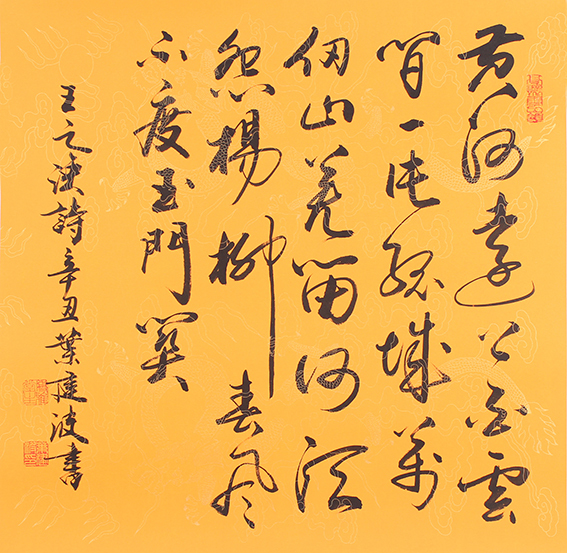 黄河遠上白雲
間一片孤城萬
仞山羌笛何須
怨楊柳春風
不度玉門關
王之渙詩辛丑葉波書